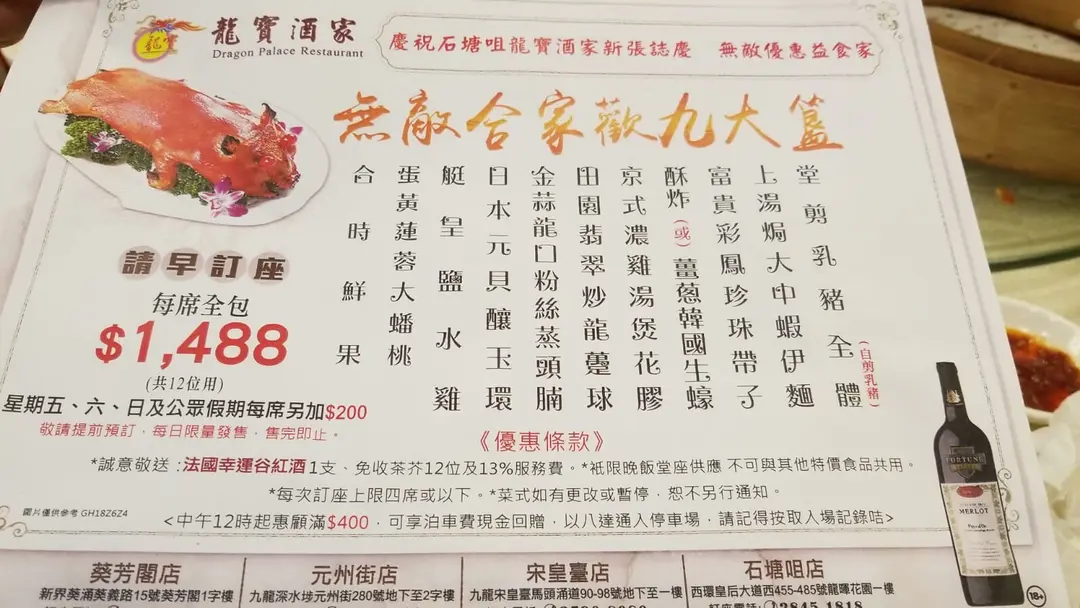 龍寶
龍寶酒家
Dragon Palace Restaurant
慶祝石塘咀龍寶酒家新張誌慶 無敵優惠益食家
無敵合家歡九大簋
堂剪乳豬全體(自剪乳豬)
上湯焗大中蝦伊麵
富貴彩鳳珍珠帶子
酥炸(或)薑蔥韓國生蠔
京式濃雞湯煲花膠
田園翡翠炒龍躉球
金蒜龍口粉絲蒸頭腩
日本元貝釀玉環
艇皇鹽水雞
蛋黃蓮蓉大蟠桃
合時鮮果
請早訂座
每席全包
$1,488
(共12位用)
星期五、六、日及公眾假期每席另加$200
敬請提前預訂，每日限量發售，售完即止。
《優惠條款》
*誠意敬送:法國幸運谷紅酒1支、免收茶芥12位及13%服務費。*祗限晚飯堂座供應 不可與其他特價食品共用。
*每次訂座上限四席或以下。*菜式如有更改或暫停，恕不另行通知。
圖片僅供參考 GH18Z6Z4
<中午12時起惠顧滿$400，可享泊車費現金回贈，以八達通入停車場，請記得按取入場記錄咭>
FORTUNE
MERLOT
18+
葵芳閣店
新界葵涌葵義路15號葵芳閣1字樓
元州街店
九龍深水埗元州街280號地下至2字樓
宋皇臺店
九龍宋皇臺馬頭涌道90-98號地下至一樓
石塘咀店
西環皇后大道西455-485號龍暉花園一樓
訂座電話:2845 1818